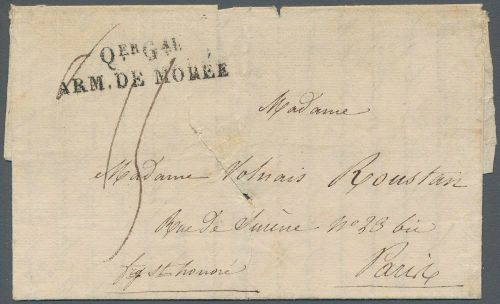 QER GAL
ARM. DE MORÉE
Madame
Madame Volnais Roustan
Rue de Surène no 23 bis
fg St honoré
Paris